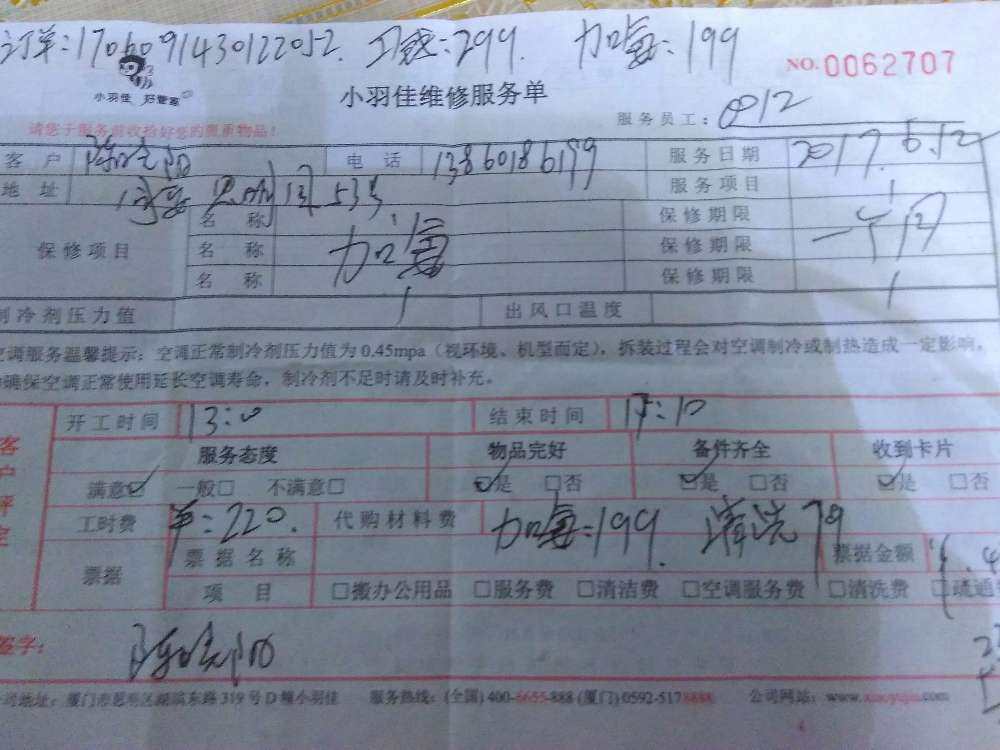 订单:1706091430122052. 工费:299. 加氟:199
NO.0062707
小羽佳 好管家
小羽佳维修服务单
服务员工: 0012
请您于服务前收拾好您的贵重物品!
客 户 电 话 13860186199 服务日期 2017.6.12
地 址 服务项目
保修项目 名 称 加氟 保修期限 一个月
名 称 保修期限
名 称 保修期限
制冷剂压力值 出风口温度
空调服务温馨提示:空调正常制冷剂压力值为0.45mpa(视环境、机型而定),拆装过程会对空调制冷或制热造成一定影响。
确保空调正常使用延长空调寿命,制冷剂不足时请及时补充。
客户评定
开工时间 13:0 结束时间 17:10
服务态度 物品完好 备件齐全 收到卡片
满意☑ 一般□ 不满意□ ☑是 □否 ☑是 □否 ☑是 □否
工时费 :220. 代购材料费 加氟:199. 清洗79
票据 票据名称 票据金额
项 目 □搬办公用品 □服务费 □清洁费 □空调服务费 □清洗费 □疏通
签字:
公司地址:厦门市思明区湖滨东路319号D幢小羽佳 服务热线:(全国)400-6655-888 (厦门)0592-5178888 公司网站:www.xiaoyujia.com